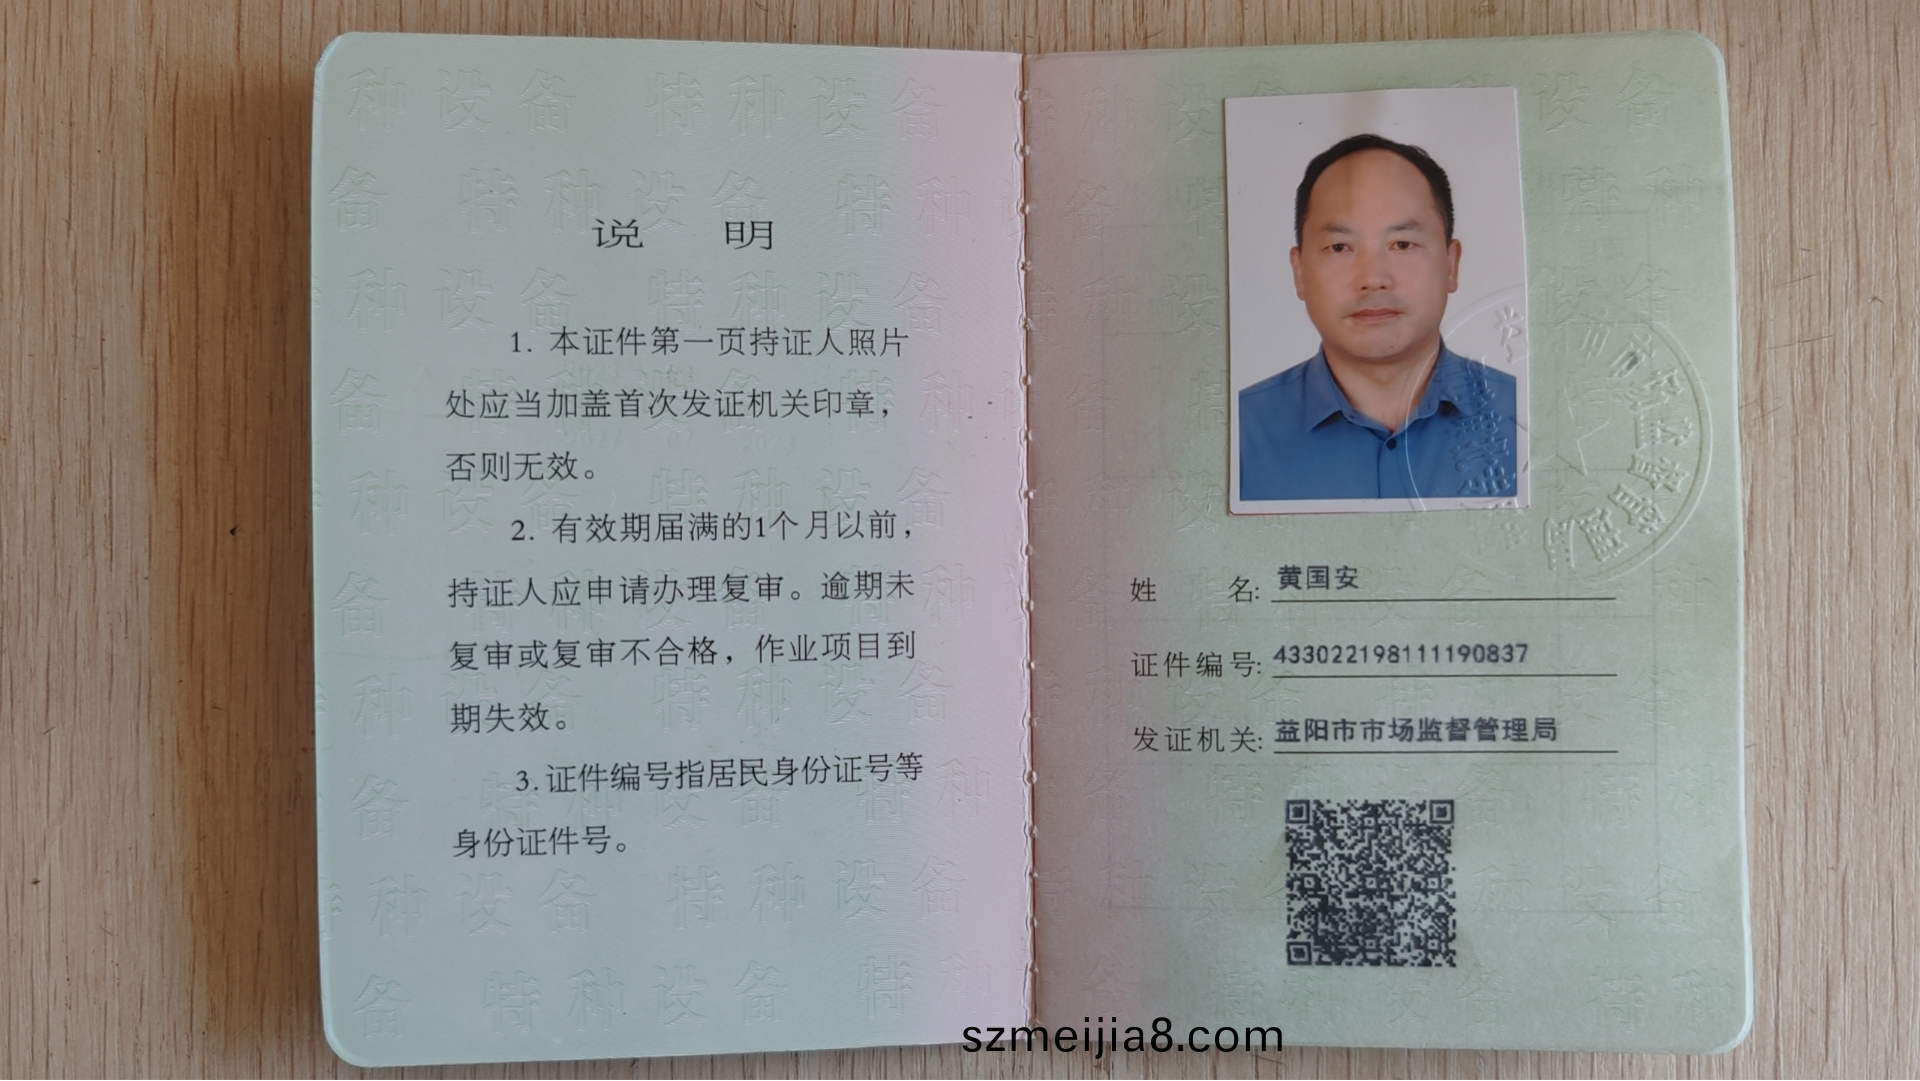 说 明
1. 本证件第一页持证人照片
处应当加盖首次发证机关印章，
否则无效。
2. 有效期届满的1个月以前，
持证人应申请办理复审。逾期未
复审或复审不合格，作业项目到
期失效。
3.证件编号指居民身份证号等
身份证件号。
姓 名: 黄国安
证件编号: 433022198111190837
发证机关: 益阳市市场监督管理局
szmeijia8.com